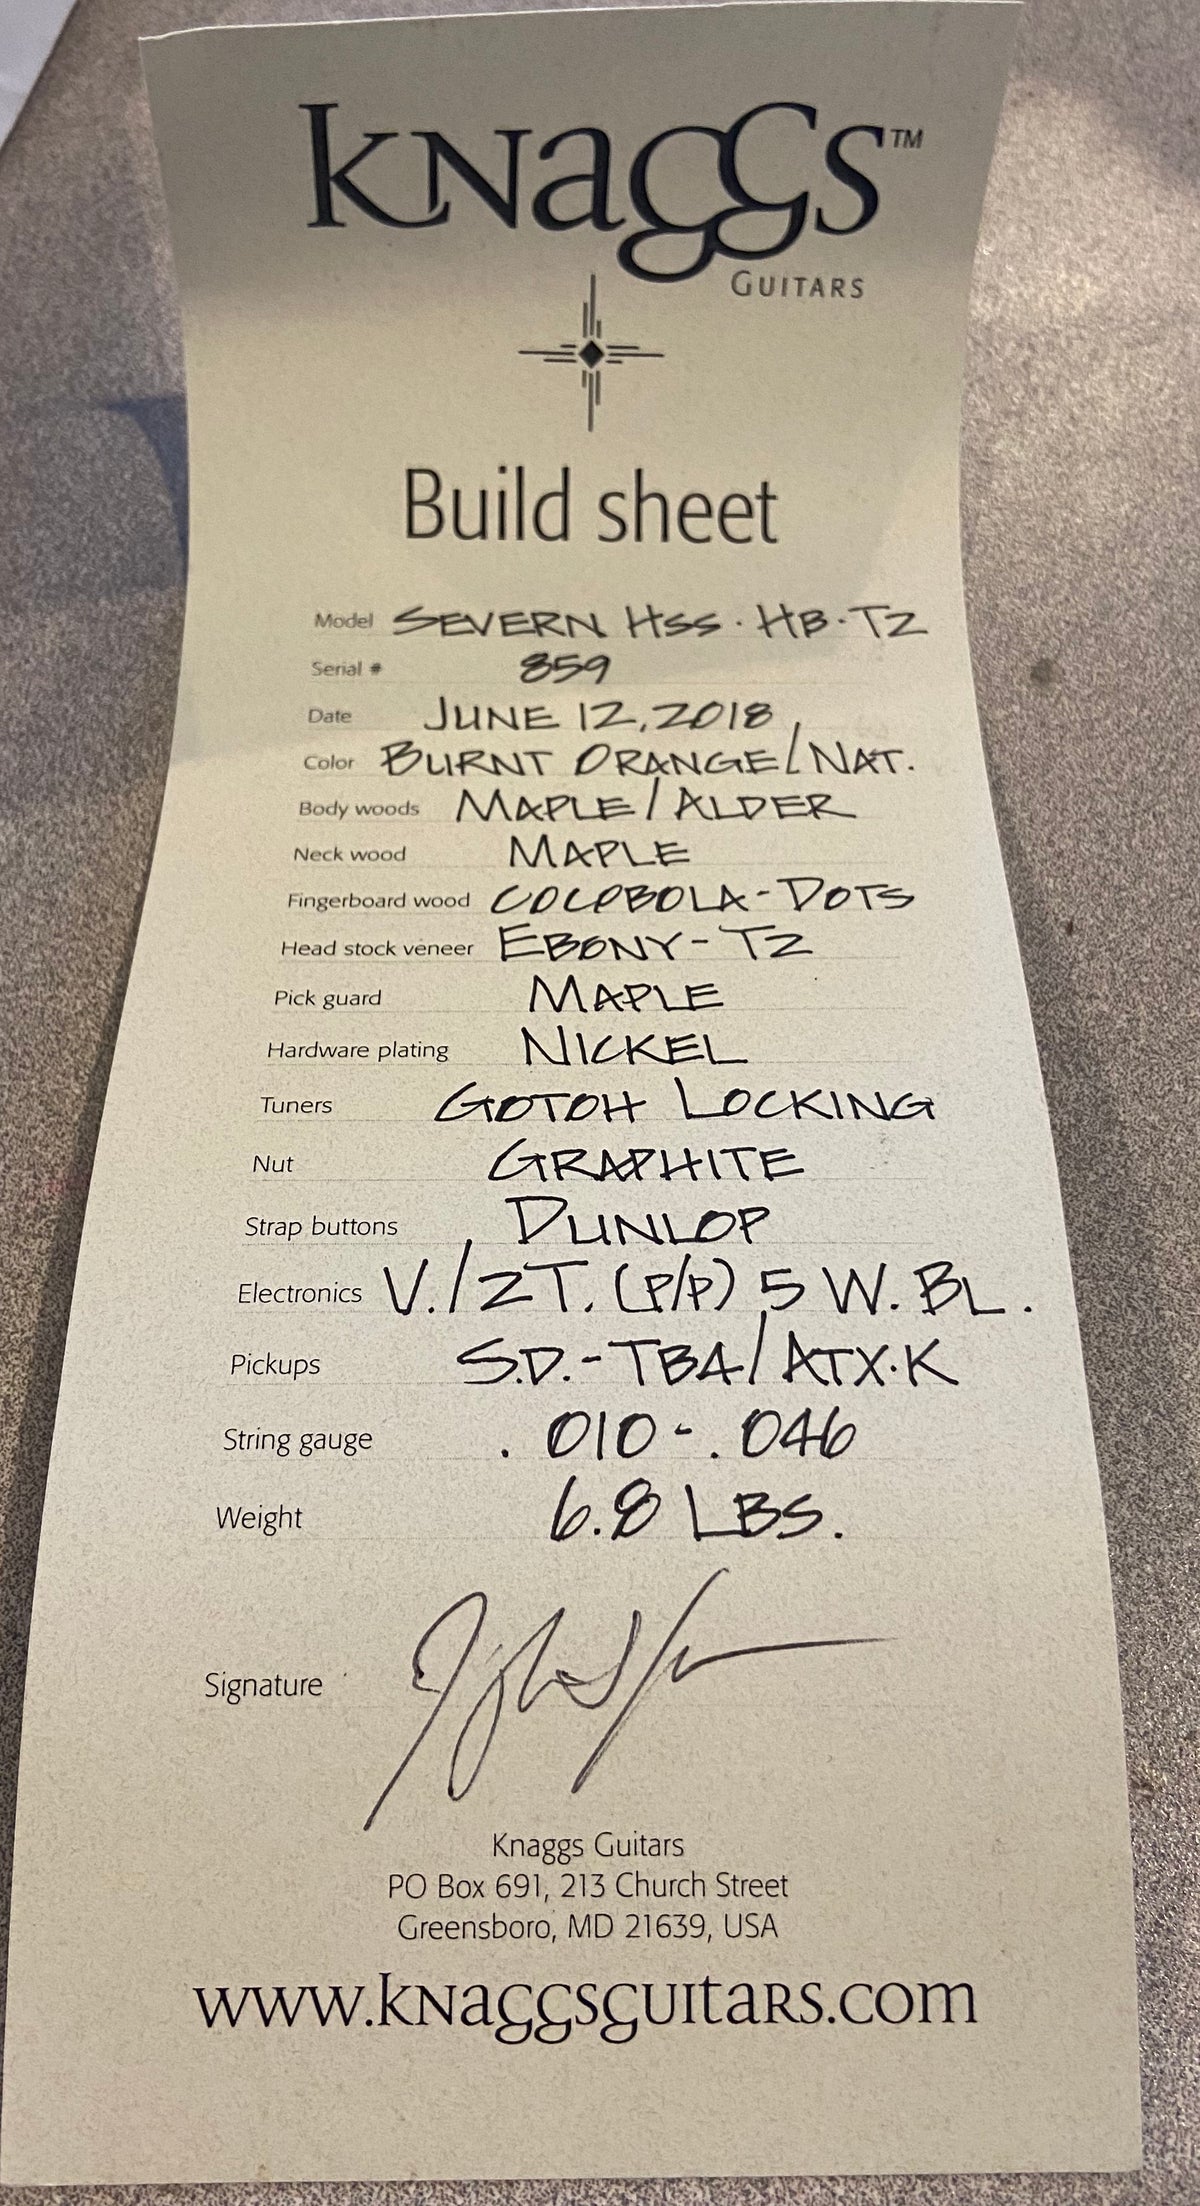 KNaGGS™
GUITARS
Build sheet
Model SEVERN HSS · HB · T2
Serial # 859
Date JUNE 12, 2018
Color BURNT ORANGE/NAT.
Body woods MAPLE/ALDER
Neck wood MAPLE
Fingerboard wood COCOBOLA - DOTS
Head stock veneer EBONY - T2
Pick guard MAPLE
Hardware plating NICKEL
Tuners GOTOH LOCKING
Nut GRAPHITE
Strap buttons DUNLOP
Electronics V./2T. (P/P) 5 W. BL.
Pickups S.D.-TB4/ATX·K
String gauge .010 - .046
Weight 6.8 LBS.
Signature
Knaggs Guitars
PO Box 691, 213 Church Street
Greensboro, MD 21639, USA
www.knaggsguitars.com